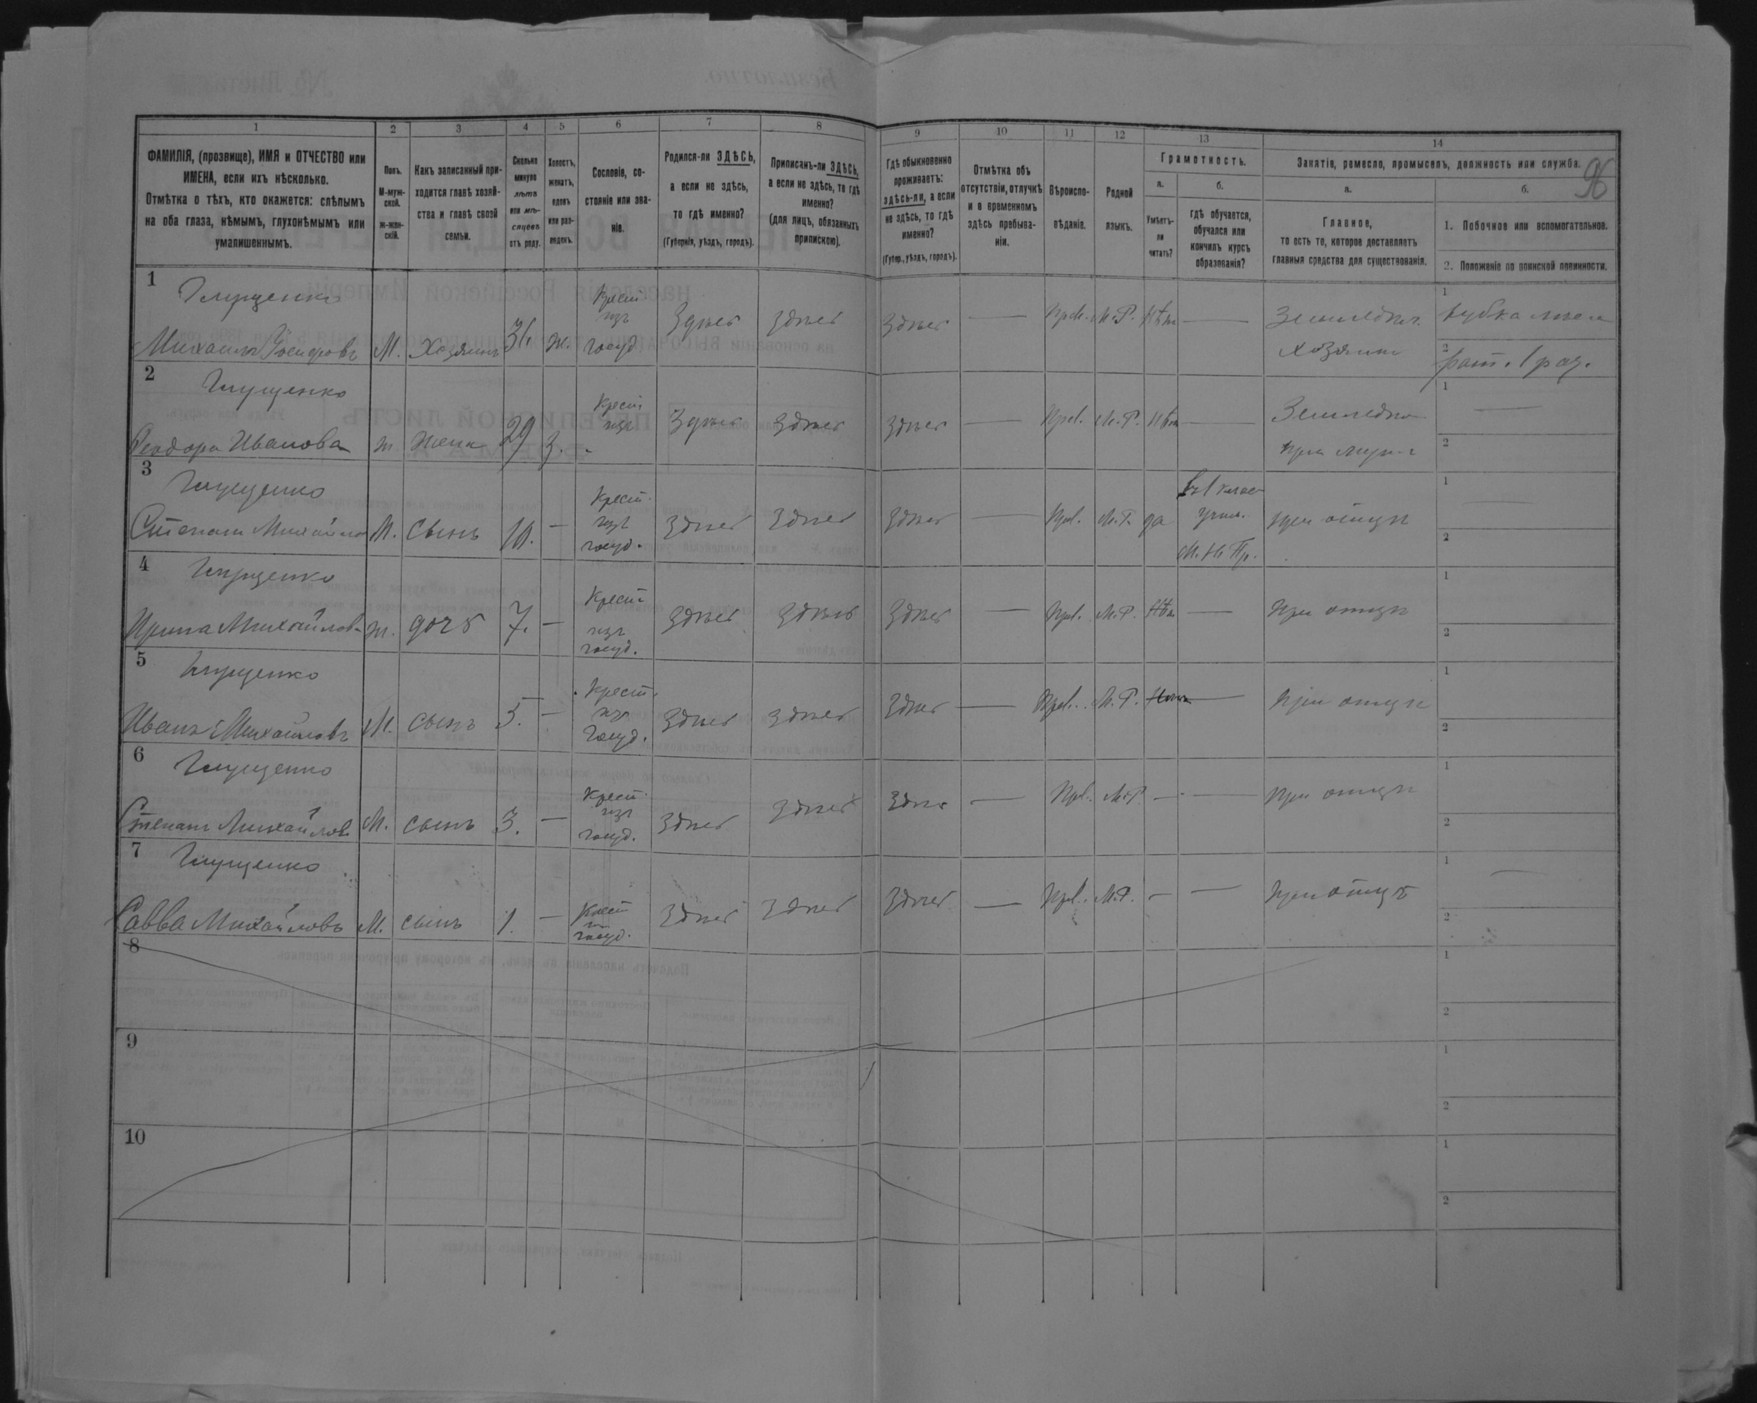 1 2 3 4 5 6 7 8 9 10 11 12 13 14
96
ФАМИЛІЯ, (прозвище), ИМЯ и ОТЧЕСТВО или
ИМЕНА, если ихъ нѣсколько.
Отмѣтка о тѣхъ, кто окажется: слѣпымъ
на оба глаза, нѣмымъ, глухонѣмымъ или
умалишеннымъ.
Полъ.
М-муж-
ской.
ж-жен-
скій.
Какъ записанный при-
ходится главѣ хозяй-
ства и главѣ своей
семьи.
Сколько
минуло
лѣтъ
или мѣ-
сяцевъ
отъ роду.
Холостъ,
женатъ,
вдовъ
или раз-
веденъ.
Сословіе, со-
стояніе или зва-
ніе.
Родился-ли ЗДѢСЬ,
а если не здѣсь,
то гдѣ именно?
(Губернія, уѣздъ, городъ).
Приписанъ-ли ЗДѢСЬ,
а если не здѣсь, то гдѣ
именно?
(для лицъ, обязанныхъ
припискою).
Гдѣ обыкновенно
проживаетъ:
здѣсь-ли, а если
не здѣсь, то гдѣ
именно?
(Губер., уѣздъ, городъ).
Отмѣтка объ
отсутствіи, отлучкѣ
и о временномъ
здѣсь пребыва-
ніи.
Вѣроиспо-
вѣданіе.
Родной
языкъ.
Грамотность.
а.
Умѣетъ-
ли
читать?
б.
гдѣ обучается,
обучался или
кончилъ курсъ
образованія?
Занятіе, ремесло, промыселъ, должность или служба.
а.
Главное,
то есть то, которое доставляетъ
главныя средства для существованія.
б.
1. Побочное или вспомогательное.
2. Положеніе по воинской повинности.
1
Глущенко
Михаилъ М. Хозяинъ 31. ж. Крест. изъ госуд. Здѣсь здѣсь здѣсь — Прав. М.Р. Нѣтъ — Земледѣл. хозяинъ
1
2 рат. 1 раз.
2
Глущенко
Ѳеодора Иванова ж жена 29 з. Крест. изъ Здѣсь здѣсь здѣсь — Прав. М.Р. Нѣтъ — Земледѣл. при мужѣ
1 —
2
3
Глущенко
Степанъ Михайлов М. сынъ 10. — Крест. изъ госуд. здѣсь здѣсь здѣсь — Прав. М.Р. да въ 1 клас. учил. М. Н. Пр. при отцѣ
1 —
2
4
Глущенко
Ирина Михайлов ж. дочь 7. — Крест. изъ госуд. здѣсь здѣсь здѣсь — Прав. М.Р. Нѣтъ — при отцѣ
1
2
5
Глущенко
Иванъ Михайловъ М. сынъ 5. — Крест. изъ госуд. здѣсь здѣсь здѣсь — Прав. М.Р. — при отцѣ
1
2
6
Глущенко
Степанъ Михайлов М. сынъ 3. — Крест. изъ госуд. здѣсь здѣсь здѣсь — Прав. М.Р. — — при отцѣ
1
2
7
Глущенко
Савва Михайловъ М. сынъ 1. — Крест. изъ госуд. здѣсь здѣсь здѣсь — Прав. М.Р. — — при отцѣ
1 —
2
8
1
2
9
1
2
10
1
2